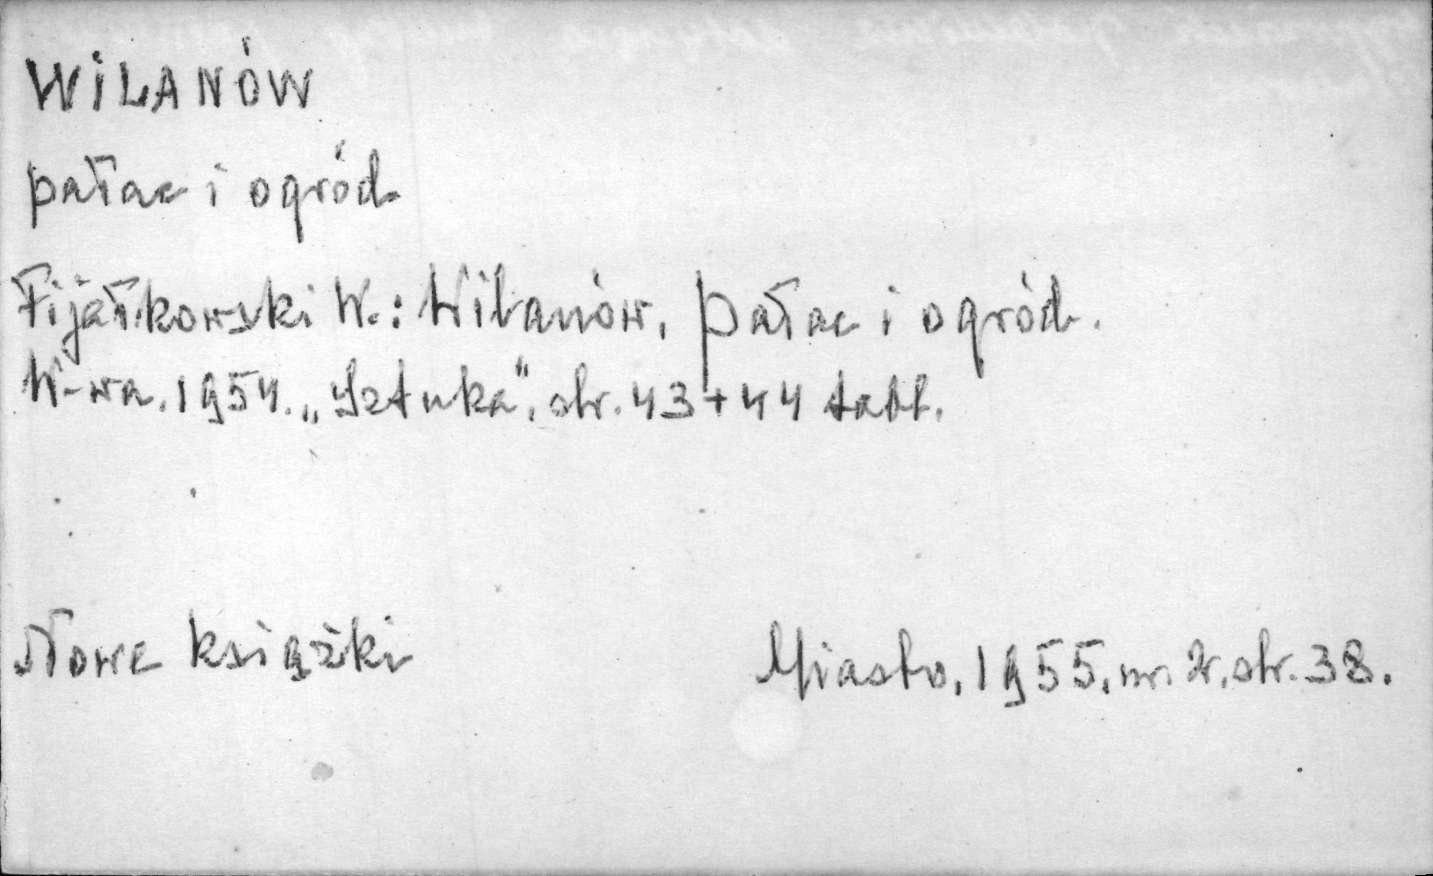 WILANÓW
pałac i ogród
Fijałkowski W.: Wilanów, Pałac i ogród.
W-wa. 1954. „Sztuka", str. 43 + 44 tabl.
Nowe książki
Miasto, 1955, nr. 2, str. 38.